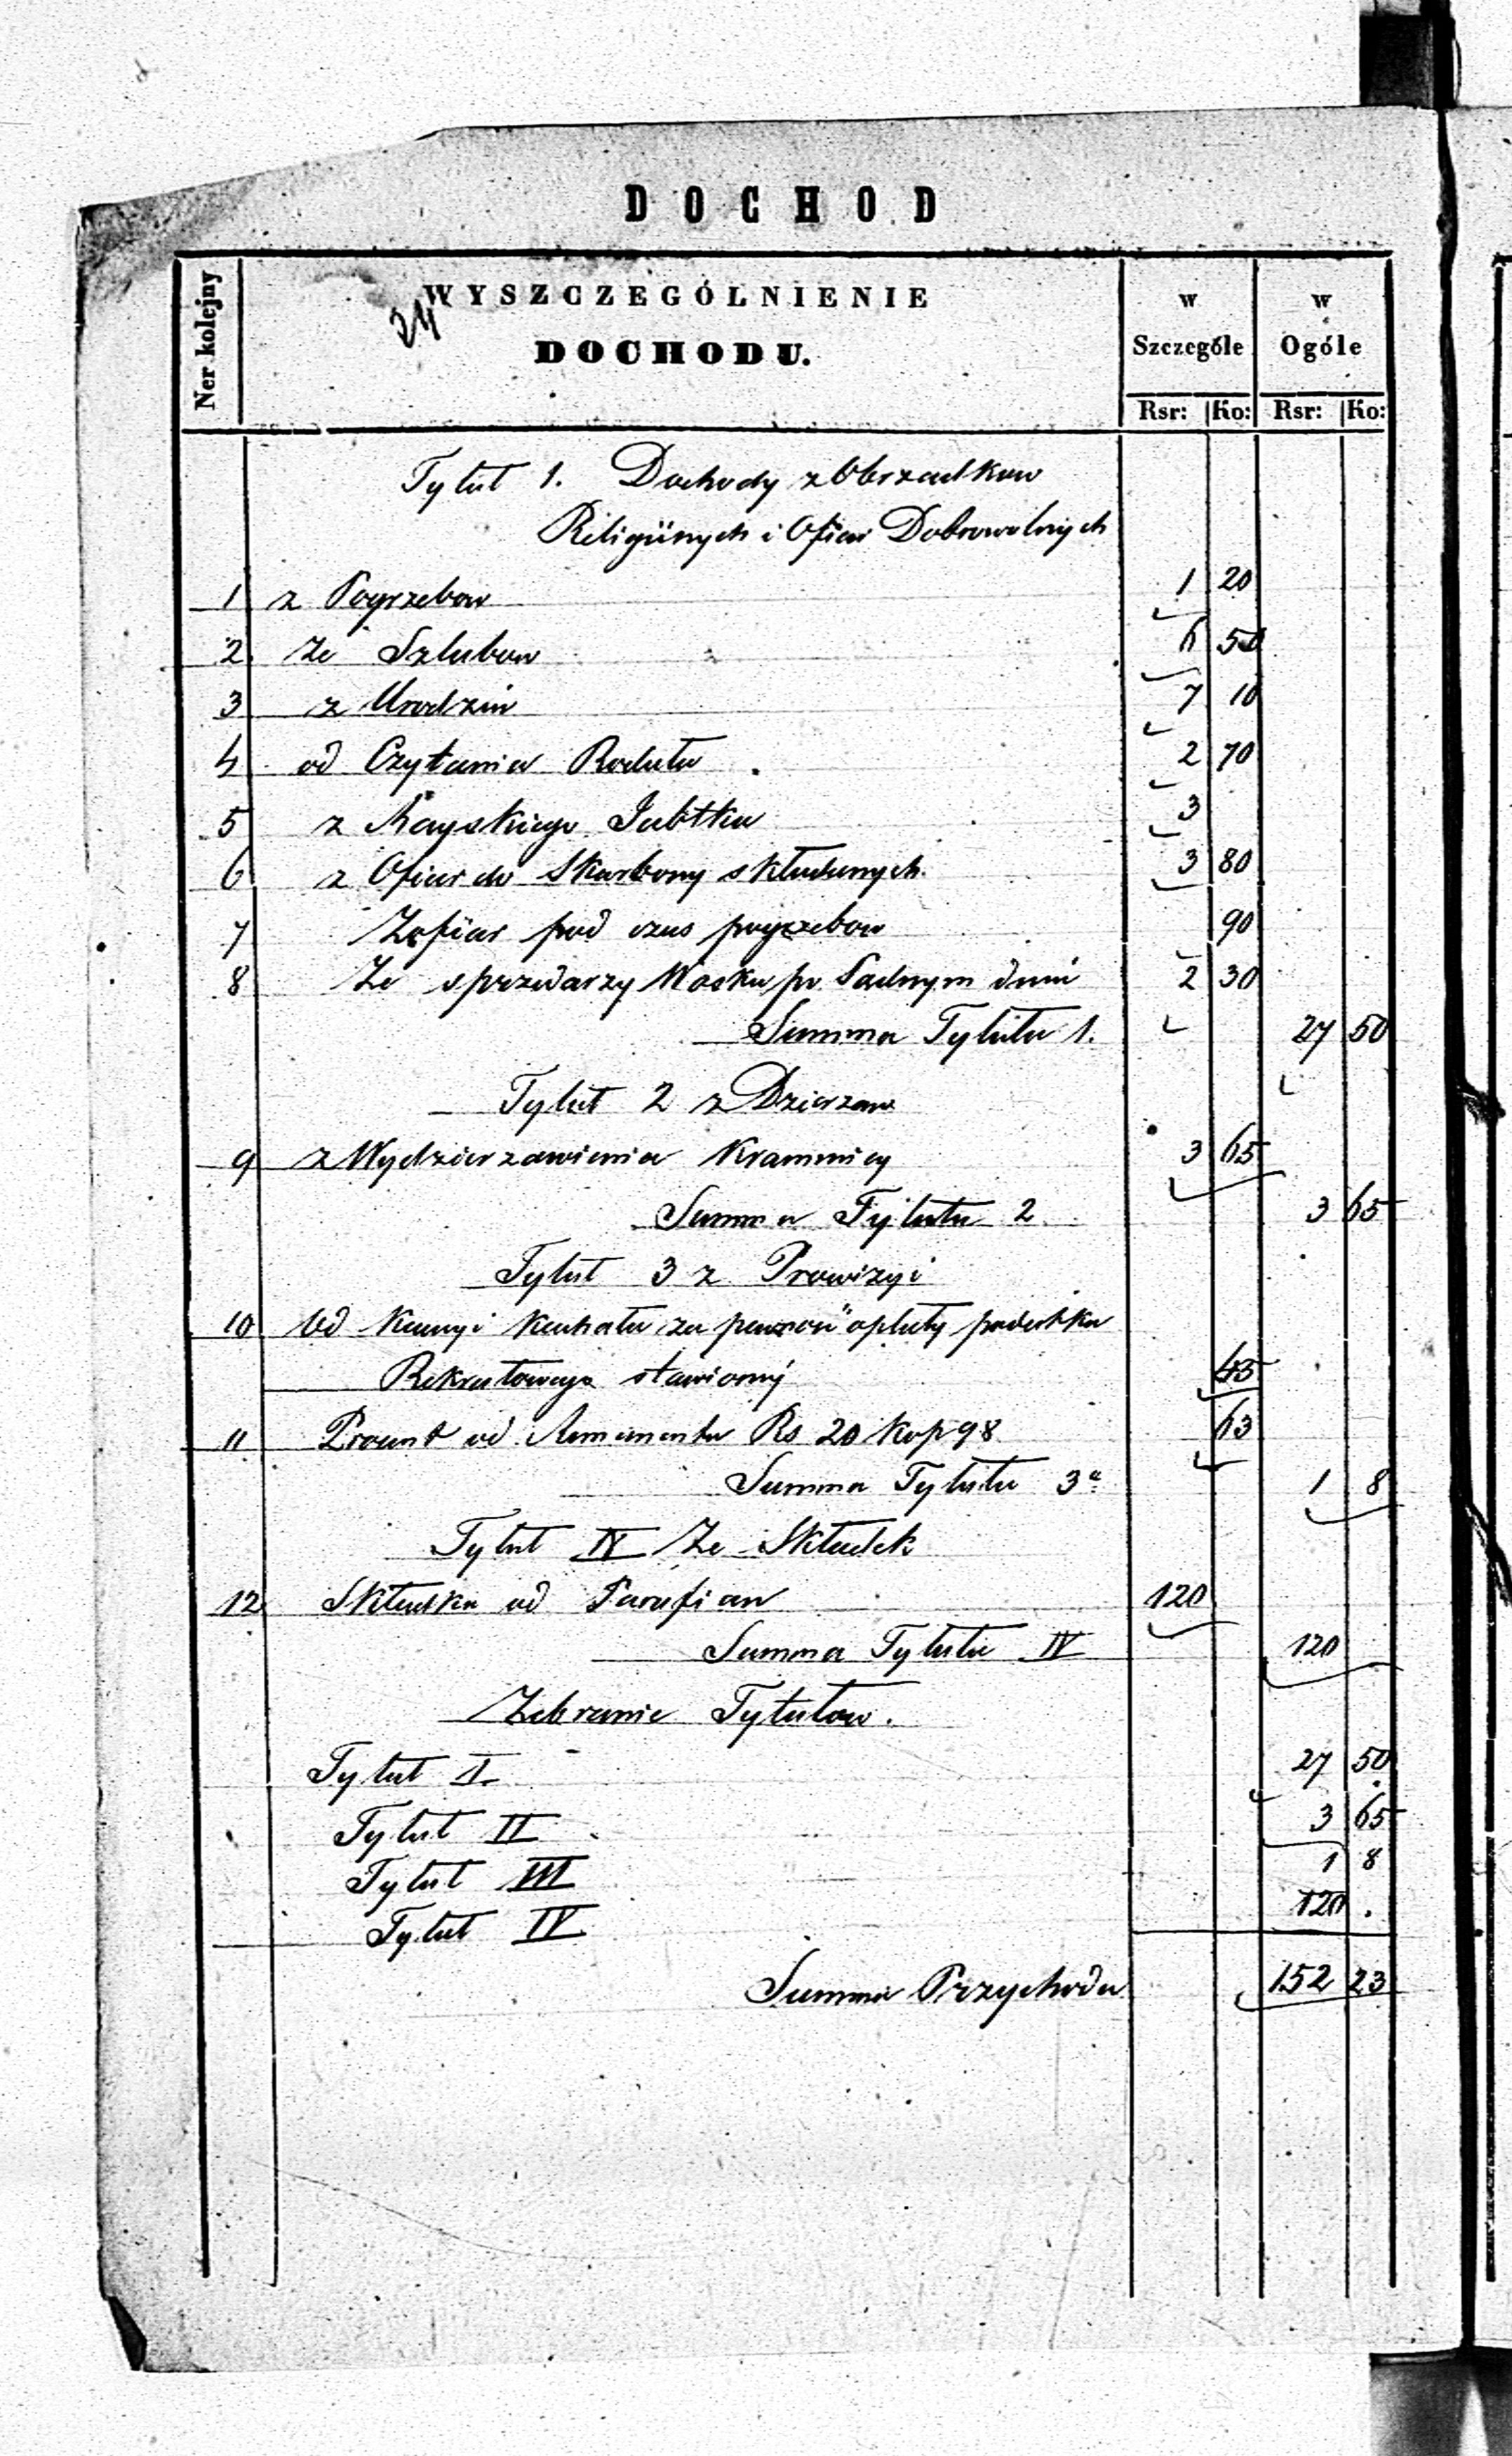 DOCHOD
Ner kolejny
WYSZCZEGÓLNIENIE
24
DOCHODU.
w Szczególe
w Ogóle
Rsr: Ko: Rsr: Ko:
Tytuł 1. Dochody z Obrzadkow
Religiinych i Ofiar Dobrowolnych
1 z Pogrzebow 1 20
2 Ze Szlubow 6 50
3 z Urodzin 7 10
4 od Czytania Rodału 2 70
5 z Rayskiego Jabłka 3
6 z Ofiar do Skarbony składanych. 3 80
7 Zofiar pod czas pogrzebow 90
8 Ze sprzedarzy Wosku po Sadnym dniu 2 30
Summa Tytułu 1. 27 50
Tytuł 2 z Dzierzaw
9 z Wydzierzawienia Krammicy 3 65
Summa Tytułu 2 3 65
Tytuł 3 z Prowizyi
10 Od Kaucyi za opłaty podatku
Rekrutowego stawioney 45
11 Procent od Rs 20 Kop 98 63
Summa Tytułu 3a 1 8
Tytuł IV Ze Składek
12 Składka od Parafian 120
Summa Tytułu IV 120
Zebranie Tytułow.
Tytuł I 27 50
Tytuł II 3 65
Tytuł III 1 8
Tytuł IV 120 .
Summa Przychodu 152 23